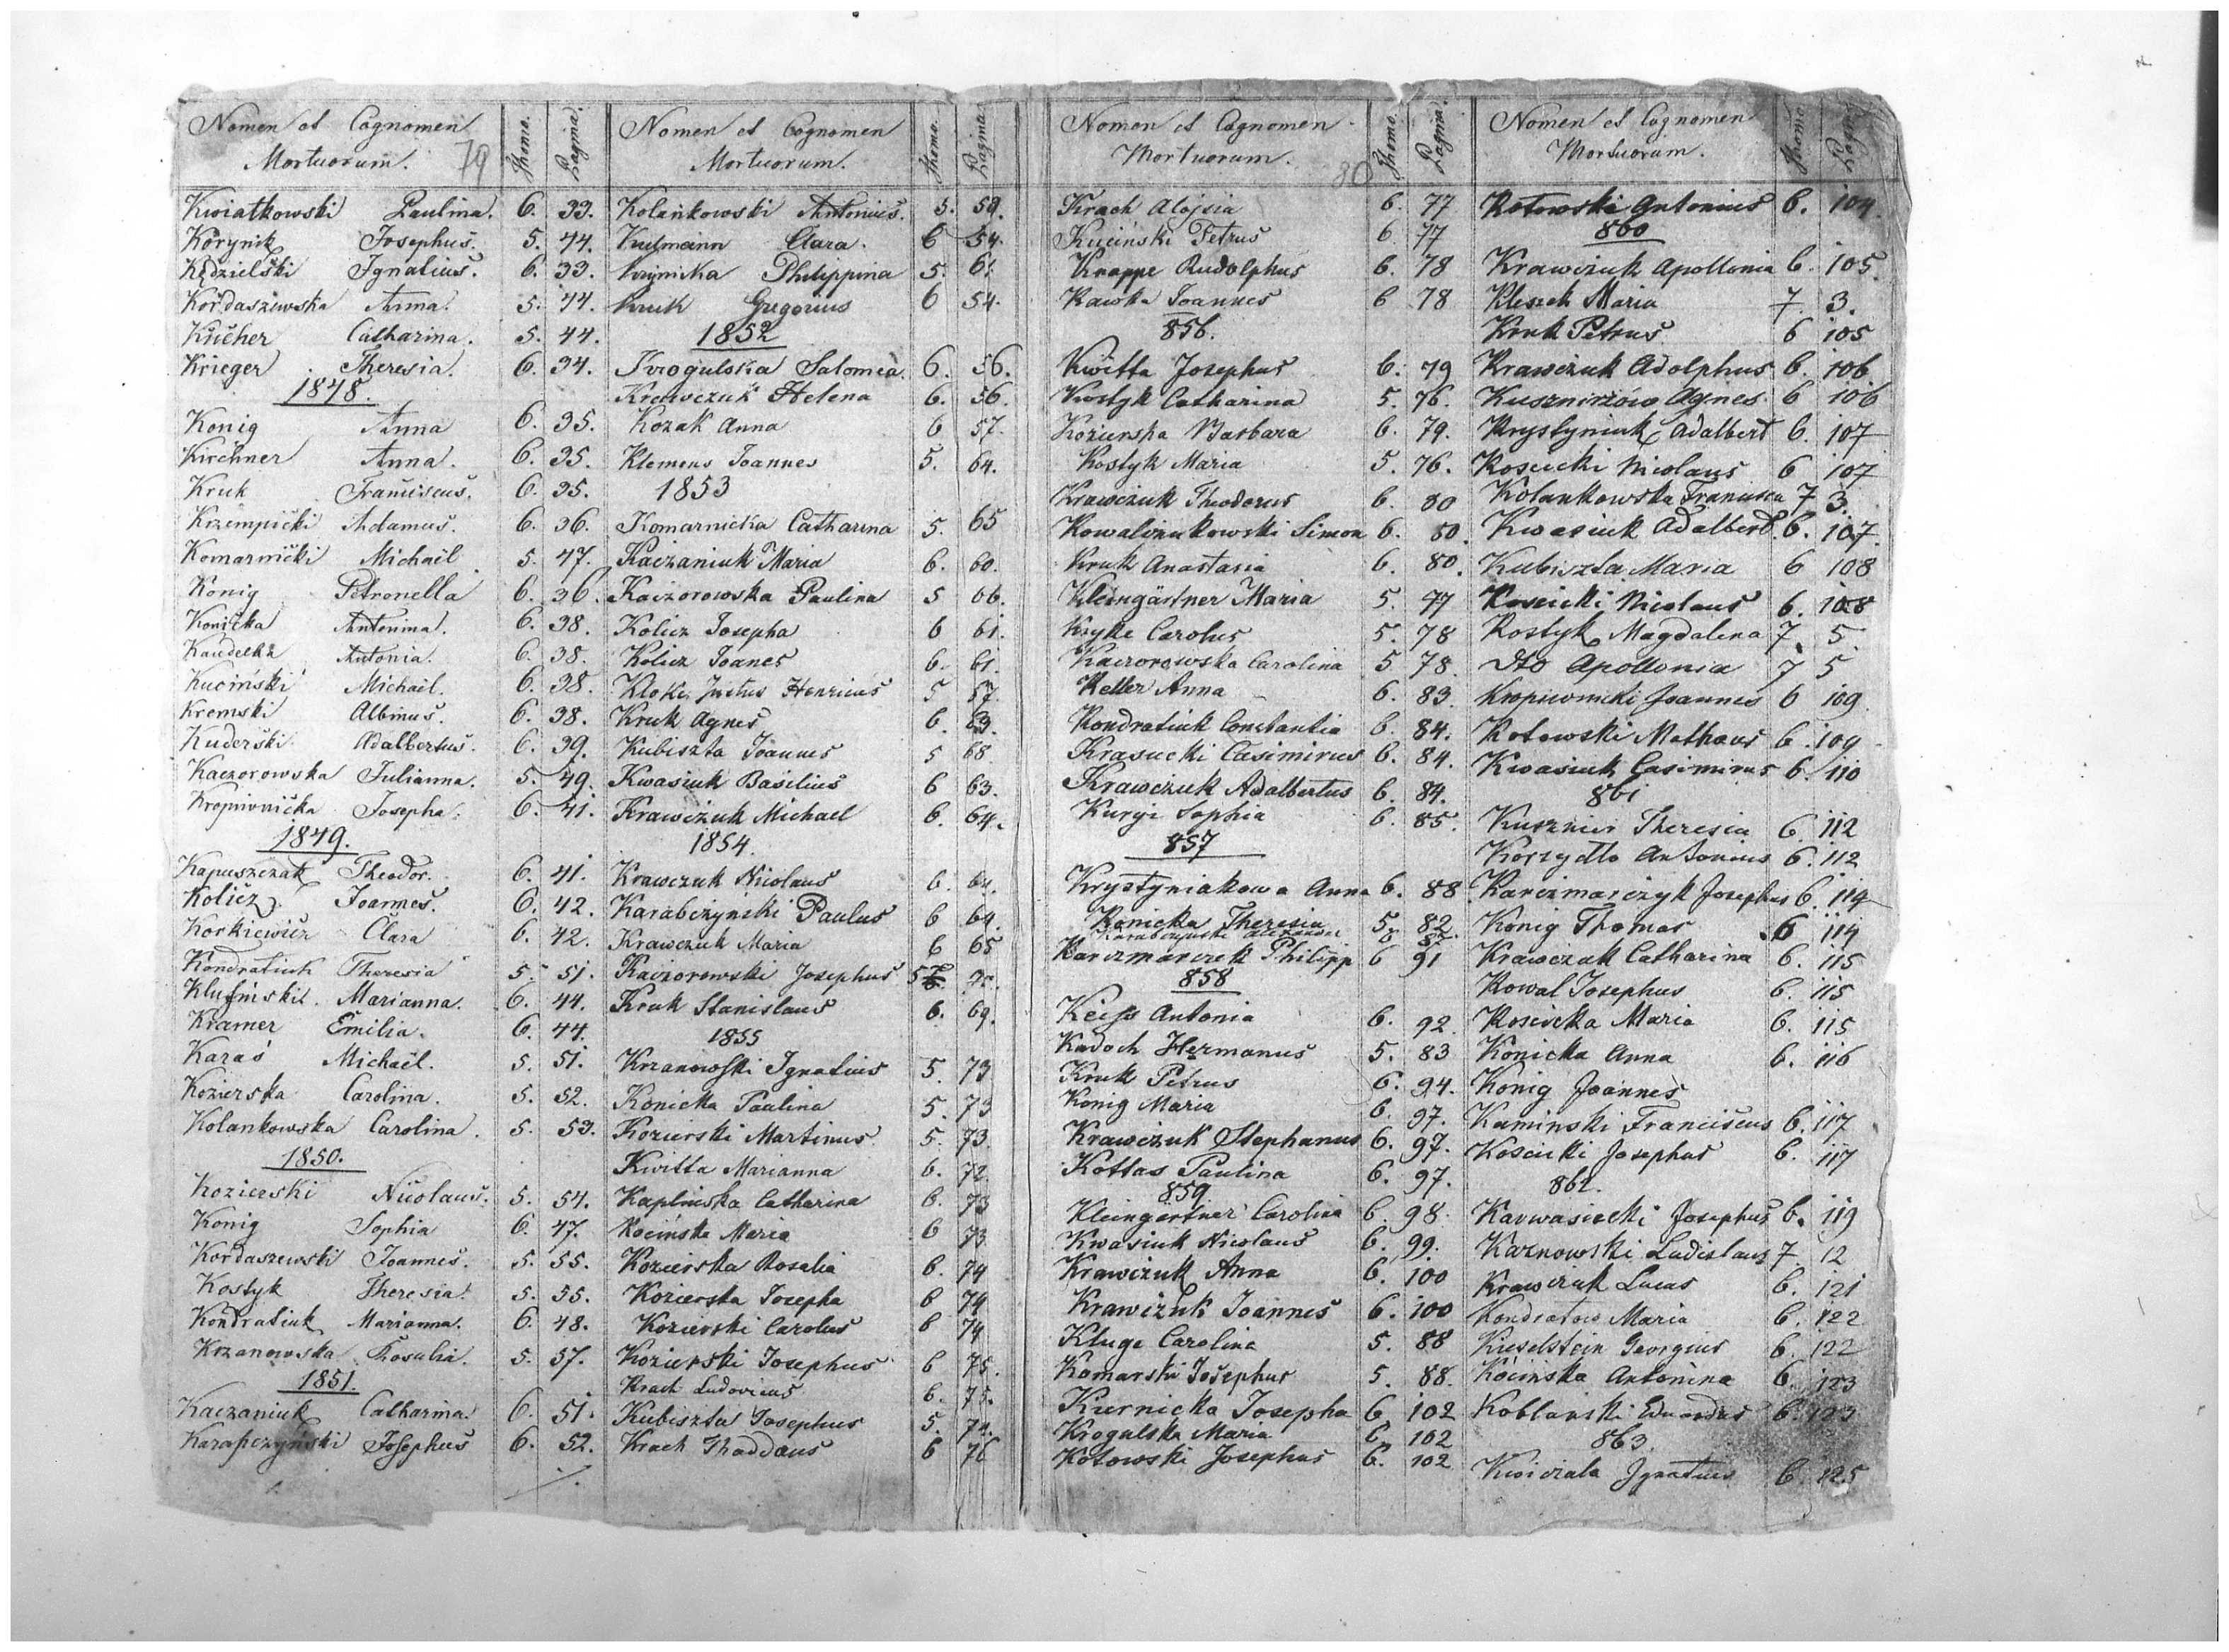 Nomen et Cognomen Mortuorum. 79 Thomo. Pagina.
Kwiatkowski Paulina. 6. 33.
Korynik Josephus. 5. 44.
Kędzielski Ignatius. 6. 33.
Kordaszewska Anna. 5. 44.
Kucher Catharina. 5. 44.
Krieger Theresia. 6. 34.
1848.
Konig Anna 6. 35.
Kirchner Anna. 6. 35.
Kruk Franciscus. 6. 35.
Krzempicki Adamus. 6. 36.
Komarnicki Michael 5. 47.
König Petronella 6. 36.
Konicka Antonina. 6. 38.
Antonia. 6. 38.
Kuciński Michael. 6. 38.
Kremski Albinus. 6. 38.
Kuderski Adalbertus. 6. 39.
Kaczorowska Julianna. 5. 49.
Kropivnicka Josepha. 6. 41.
1849.
Kapuszczak Theodor. 6. 41.
Kolicz Joannes. 6. 42.
Korkiewicz Clara 6. 42.
Kondratiuk Theresia 5. 51.
Marianna. 6. 44.
Kramer Emilia. 6. 44.
Karaś Michael. 5. 51.
Kozierska Carolina. 5. 52.
Kolankowska Carolina. 5. 53.
1850.
Kozierski Nicolaus. 5. 54.
Konig Sophia 6. 47.
Kordaszewski Joannes. 5. 55.
Kostyk Theresia. 5. 55.
Kondratiuk Marianna. 6. 48.
Krzanowska Rosalia. 5. 57.
1851.
Kaczaniuk Catharina. 6. 51.
Karapczyński Josephus 6. 52.
Nomen et Cognomen Mortuorum. Thomo. Pagina.
Kolankowski Antonius. 5. 59.
Kulmann Clara. 6 54.
Philippina 5. 61.
Kruk Gregorius 6 54.
1852
Krogulska Salomea. 6. 56.
Krawczuk Helena 6. 56.
Kozak Anna 6 57.
Klemens Joannes 5. 64.
1853
Komarnicka Catharina 5. 65
Kaczaniuk Maria 6. 60.
Kaczorowska Paulina 5 66.
Kolicz Josepha 6 61.
Kolicz Joanes 6. 61
Justus Henricus 5 57.
Kruk Agnes 6. 63.
Kubiszta Joannes 5 68
Kwasiuk Basilius 6 63.
Krawczuk Michael 6. 64.
1854.
Krawczuk Nicolaus 6. 64.
Karabczyński Paulus 6 64.
Krawczuk Maria 6 65
Kaczorowski Josephus 5
Kruk Stanislaus 6. 69.
1855
Krzanowski Ignatius 5. 73
Konicka Paulina 5. 73
Kozierski Martinus 5. 73
Kwitta Marianna 6. 72.
Kaplinska Catharina 6. 73
Kocińska Maria 6 73
Kozierska Rosalia 6. 74
Kozierska Josepha 6 74
Kozierski Carolus 6 74
Kozierski Josephus 6 75.
Krach Ludovicus 6. 75.
Kubiszta Josephus 5. 74.
Krach Thaddaus 6 76
Nomen et Cognomen Mortuorum. 80 Thomo. Pagina.
Krach Alojsia 6. 77
Kuciński Petrus 6. 77
Knappe Rudolphus 6. 78
Kawka Joannes 6 78
856.
Kwitta Josephus 6. 79
Kostyk Catharina 5. 76.
Kozierska Barbara 6. 79.
Kostyk Maria 5. 76.
Krawczuk Theodorus 6. 80
Kowalczukowski Simon 6. 80.
Kruk Anastasia 6. 80.
Kleingärtner Maria 5. 77
Carolus 5. 78
Kaczorowska Carolina 5 78.
Keller Anna 6. 83
Kondratiuk Constantia 6. 84.
Krasucki Casimirus 6. 84.
Krawczuk Adalbertus 6. 84.
Kuryi Sophia 6. 85.
857
Krystyniakowa Anna 6. 88.
Konicka Theresia 5. 82.
Karabczyński Alexander
Karczmarczek Philipp 6 91
858
Keiss Antonia 6. 92
Kadoch Hermanus 5. 83
Kruk Petrus 6. 94.
Konig Maria 6. 97.
Krawczuk Stephanus 6. 97.
Kottas Paulina 6. 97.
859.
Kleingärtner Carolina 6 98.
Kwasiuk Nicolaus 6. 99.
Krawczuk Anna 6. 100
Krawczuk Joannes 6. 100
Kluge Carolina 5. 88
Komarski Josephus 5. 88.
Kurnicka Josepha 6 102
Krogulska Maria 6. 102
Kotowski Josephus 6. 102
Nomen et Cognomen Mortuorum. Thomo. Pagina
Kotowski Antonius 6. 104.
860
Krawczuk Apollonia 6. 105.
Kleszch Maria 7. 3.
Kruk Petrus 6 105
Krawczuk Adolphus 6. 106
Agnes. 6 106
Krystyniuk Adalbert 6. 107
Koscicki Nicolaus 6 107
Kolankowska Francisca 7 3.
Kwasiuk Adalbert. 6. 107.
Kubiszta Maria 6 108
Koscicki Nicolaus 6. 108
Kostyk Magdalena 7. 5.
Dto Apollonia 7 5
Kropiwnicki Joannes 6 109
Kotowski Mathaus 6. 109
Kwasiuk Casimirus 6. 110
861
Kusznier Theresia 6. 112
Korzydło Antonius 6. 112
Karczmarczyk Josephus 6. 114
König Thomas 6 114
Krawczuk Catharina 6. 115
Kowal Josephus 6. 115
Koscicka Maria 6. 115
Konicka Anna 6. 116
König Joannes
Kaminski Franciscus 6. 117
Koscicki Josephus 6. 117
862.
Karwasiecki Josephus 6. 119
Kaznowski Ladislaus 7. 12
Krawczuk Lucas 6. 121
Kondratow Maria 6. 122
Kieselstein Georgius 6. 122
Kocińska Antonina 6. 123
Koblanski Eduardus 6. 123
863.
Kwiczala Ignatius 6. 125